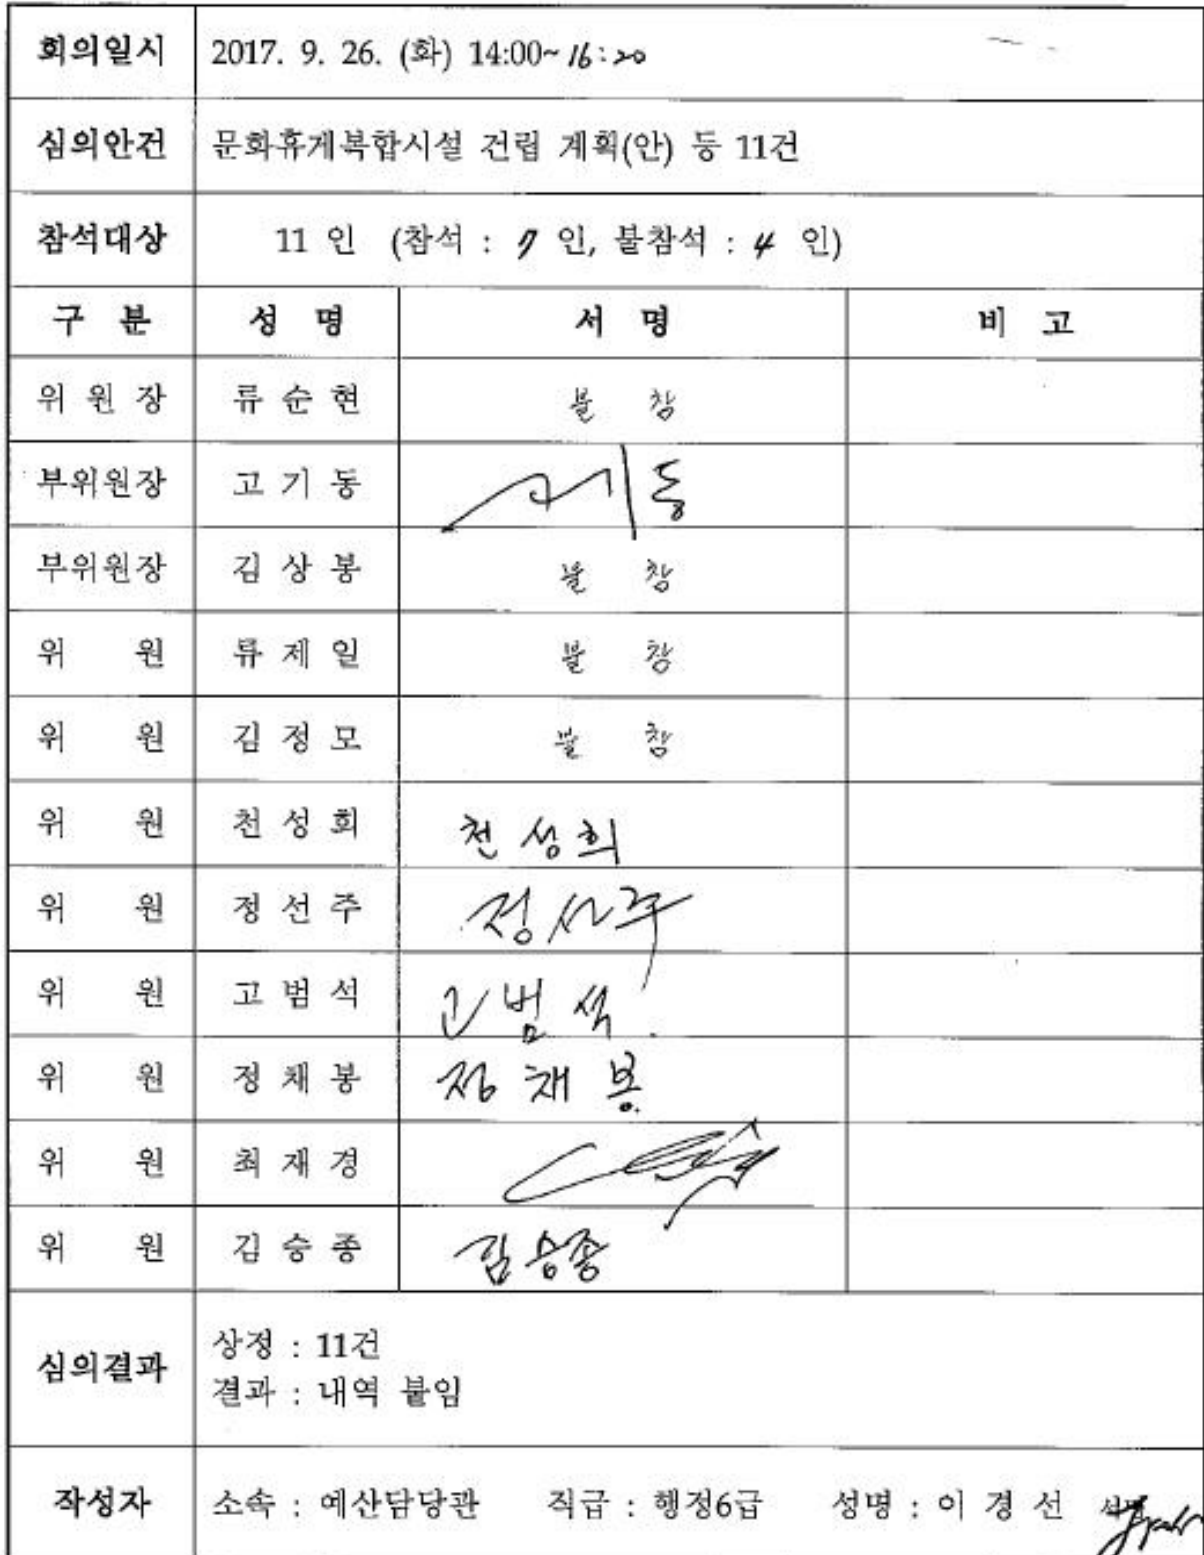 회의일시 2017. 9. 26. (화) 14:00~16:20
심의안건 문화휴게복합시설 건립 계획(안) 등 11건
참석대상 11 인 (참석 : 7 인, 불참석 : 4 인)
구 분 성 명 서 명 비 고
위 원 장 류 순 현 불 참
부위원장 고 기 동 고기동
부위원장 김 상 봉 불 참
위 원 류 제 일 불 참
위 원 김 정 모 불 참
위 원 천 성 희 천 성 희
위 원 정 선 주 정선주
위 원 고 범 석 고 범 석
위 원 정 채 봉 정 채 봉
위 원 최 재 경
위 원 김 승 종 김승종
심의결과 상정 : 11건
결과 : 내역 붙임
작성자 소속 : 예산담당관 직급 : 행정6급 성명 : 이 경 선